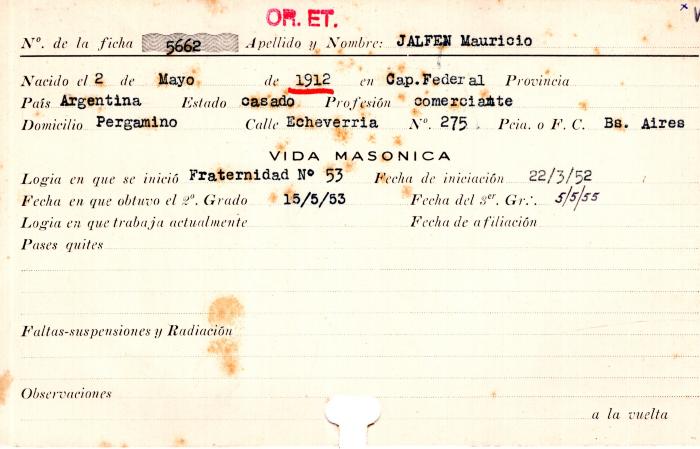 OR. ET.
Nº. de la ficha 5662 Apellido y Nombre: JALFEN Mauricio
Nacido el 2 de Mayo de 1912 en Cap.Federal Provincia
País Argentina Estado casado Profesión comerciante
Domicilio Pergamino Calle Echeverria Nº. 275 Pcia. o F. C. Bs. Aires
VIDA MASONICA
Logia en que se inició Fraternidad Nº 53 Fecha de iniciación 22/3/52
Fecha en que obtuvo el 2º. Grado 15/5/53 Fecha del 3er. Gr∴. 5/5/55
Logia en que trabaja actualmente Fecha de afiliación
Pases quites
Faltas-suspensiones y Radiación
Observaciones
a la vuelta